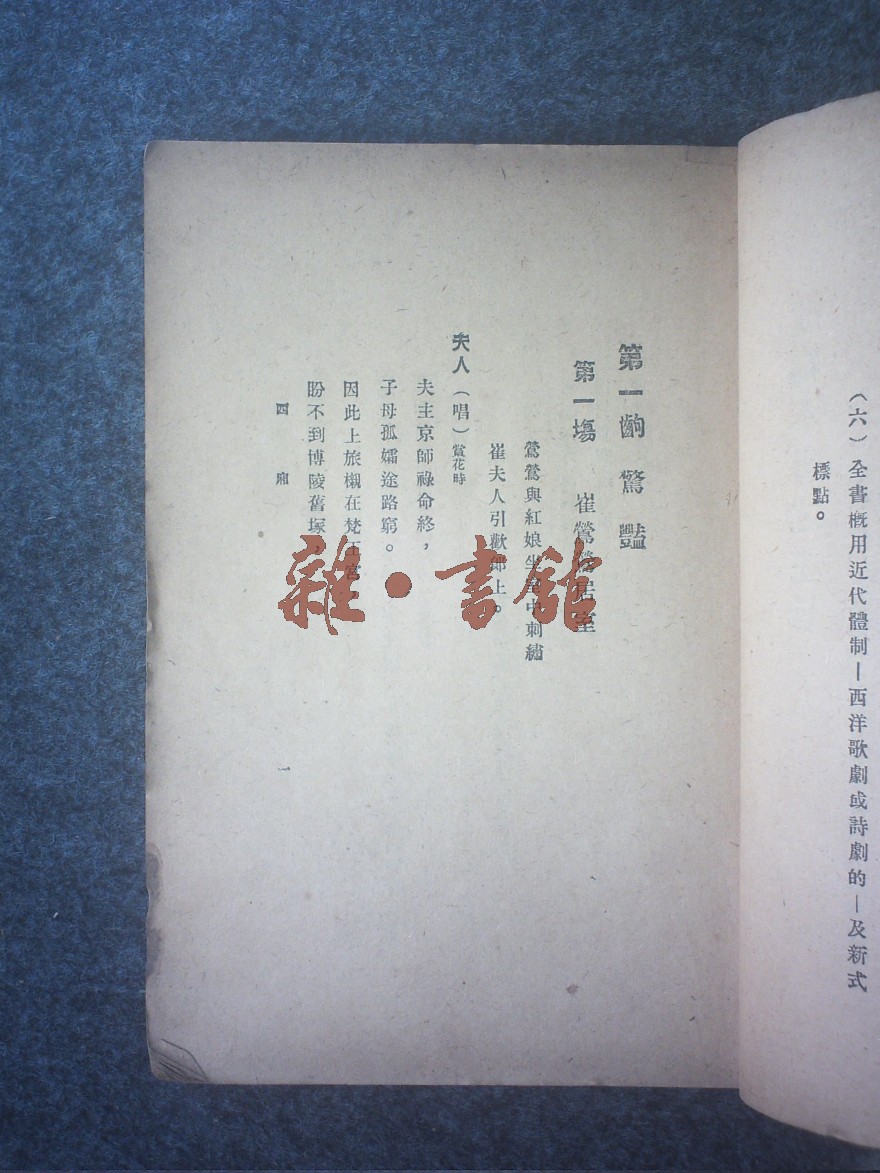 （六）全書概用近代體制—西洋歌劇或詩劇的—及新式
標點。
第一齣 驚豔
第一場 崔鶯鶯居室
鶯鶯與紅娘坐室中刺繡
崔夫人引歡郎上。
夫人（唱）賞花時
夫主京師祿命終，
子母孤孀途路窮。
因此上旅櫬在梵王宮。
盼不到博陵舊塚，
西廂
一
雜·書館